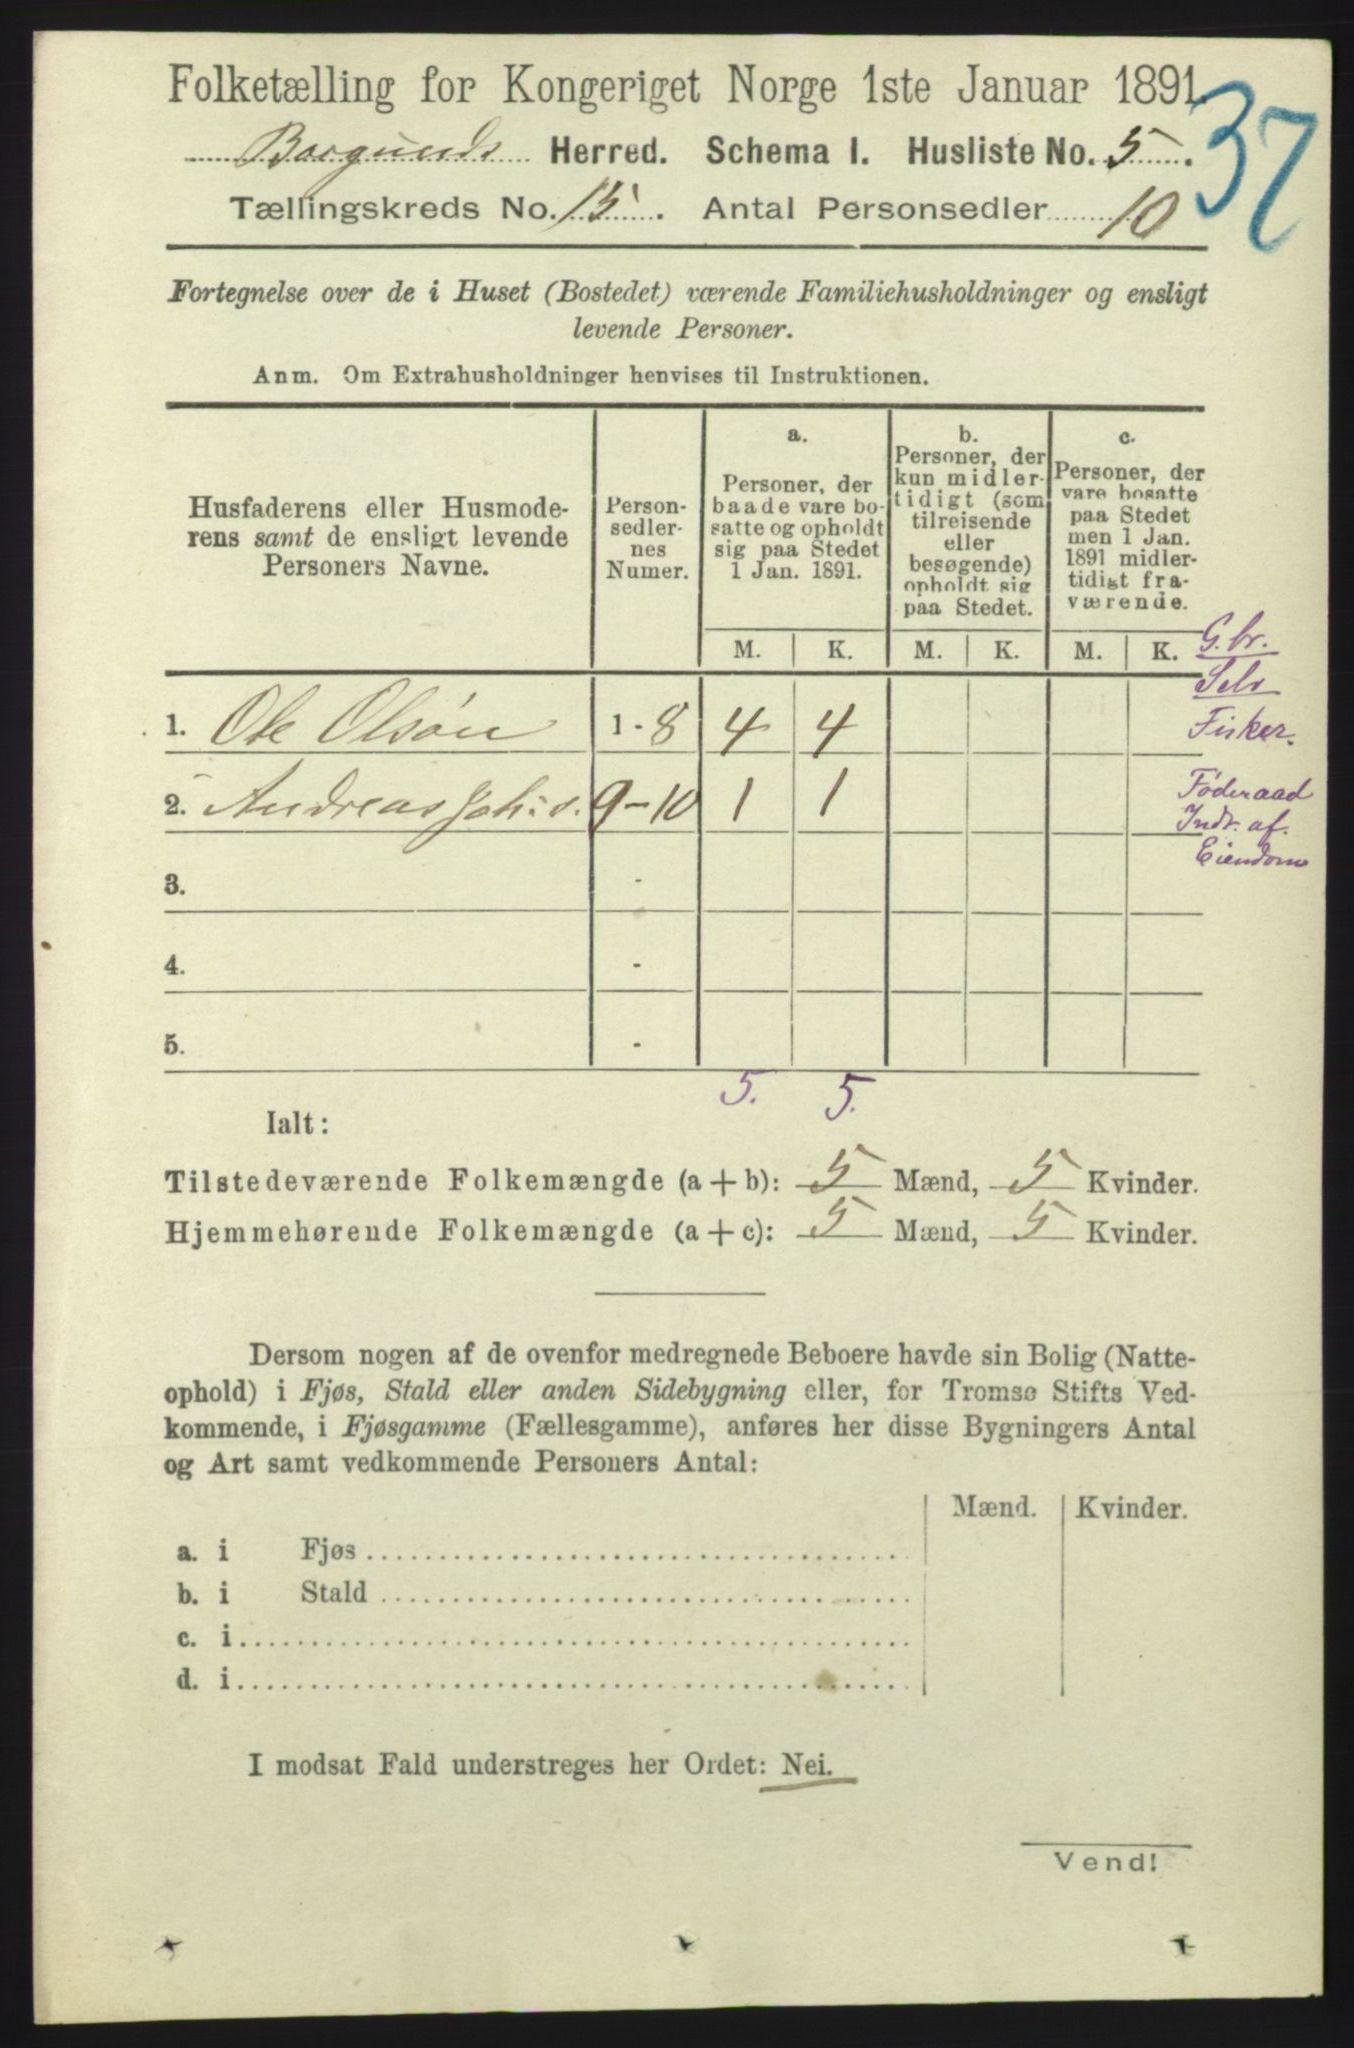 Folketælling for Kongeriget Norge 1ste Januar 1891.
37
Borgunds Herred. Schema I. Husliste No. 5.
Tællingskreds No. 15. Antal Personsedler 10
Fortegnelse over de i Huset (Bostedet) værende Familiehusholdninger og ensligt
levende Personer.
Anm. Om Extrahusholdninger henvises til Instruktionen.
Husfaderens eller Husmode-
rens samt de ensligt levende
Personers Navne.
Person-
sedler-
nes
Numer.
a.
Personer, der
baade vare bo-
satte og opholdt
sig paa Stedet
1 Jan. 1891.
b.
Personer, der
kun midler-
tidigt (som
tilreisende
eller
besøgende)
opholdt sig
paa Stedet.
c.
Personer, der
vare bosatte
paa Stedet
men 1 Jan.
1891 midler-
tidigt fra-
værende.
M. K. M. K. M. K.
G.br.
Selv
1. Ole Olsøn 1-8 4 4 Fisker.
2. Andreas Joh:s. 9-10 1 1 Føderaad
Indt. af.
Eiendom
3. -
4. -
5. -
5. 5.
Ialt:
Tilstedeværende Folkemængde (a + b): 5 Mænd, 5 Kvinder.
Hjemmehørende Folkemængde (a + c): 5 Mænd, 5 Kvinder.
Dersom nogen af de ovenfor medregnede Beboere havde sin Bolig (Natte-
ophold) i Fjøs, Stald eller anden Sidebygning eller, for Tromsø Stifts Ved-
kommende, i Fjøsgamme (Fællesgamme), anføres her disse Bygningers Antal
og Art samt vedkommende Personers Antal:
Mænd. Kvinder.
a. i Fjøs
b. i Stald
c. i
d. i
I modsat Fald understreges her Ordet: Nei.
Vend!